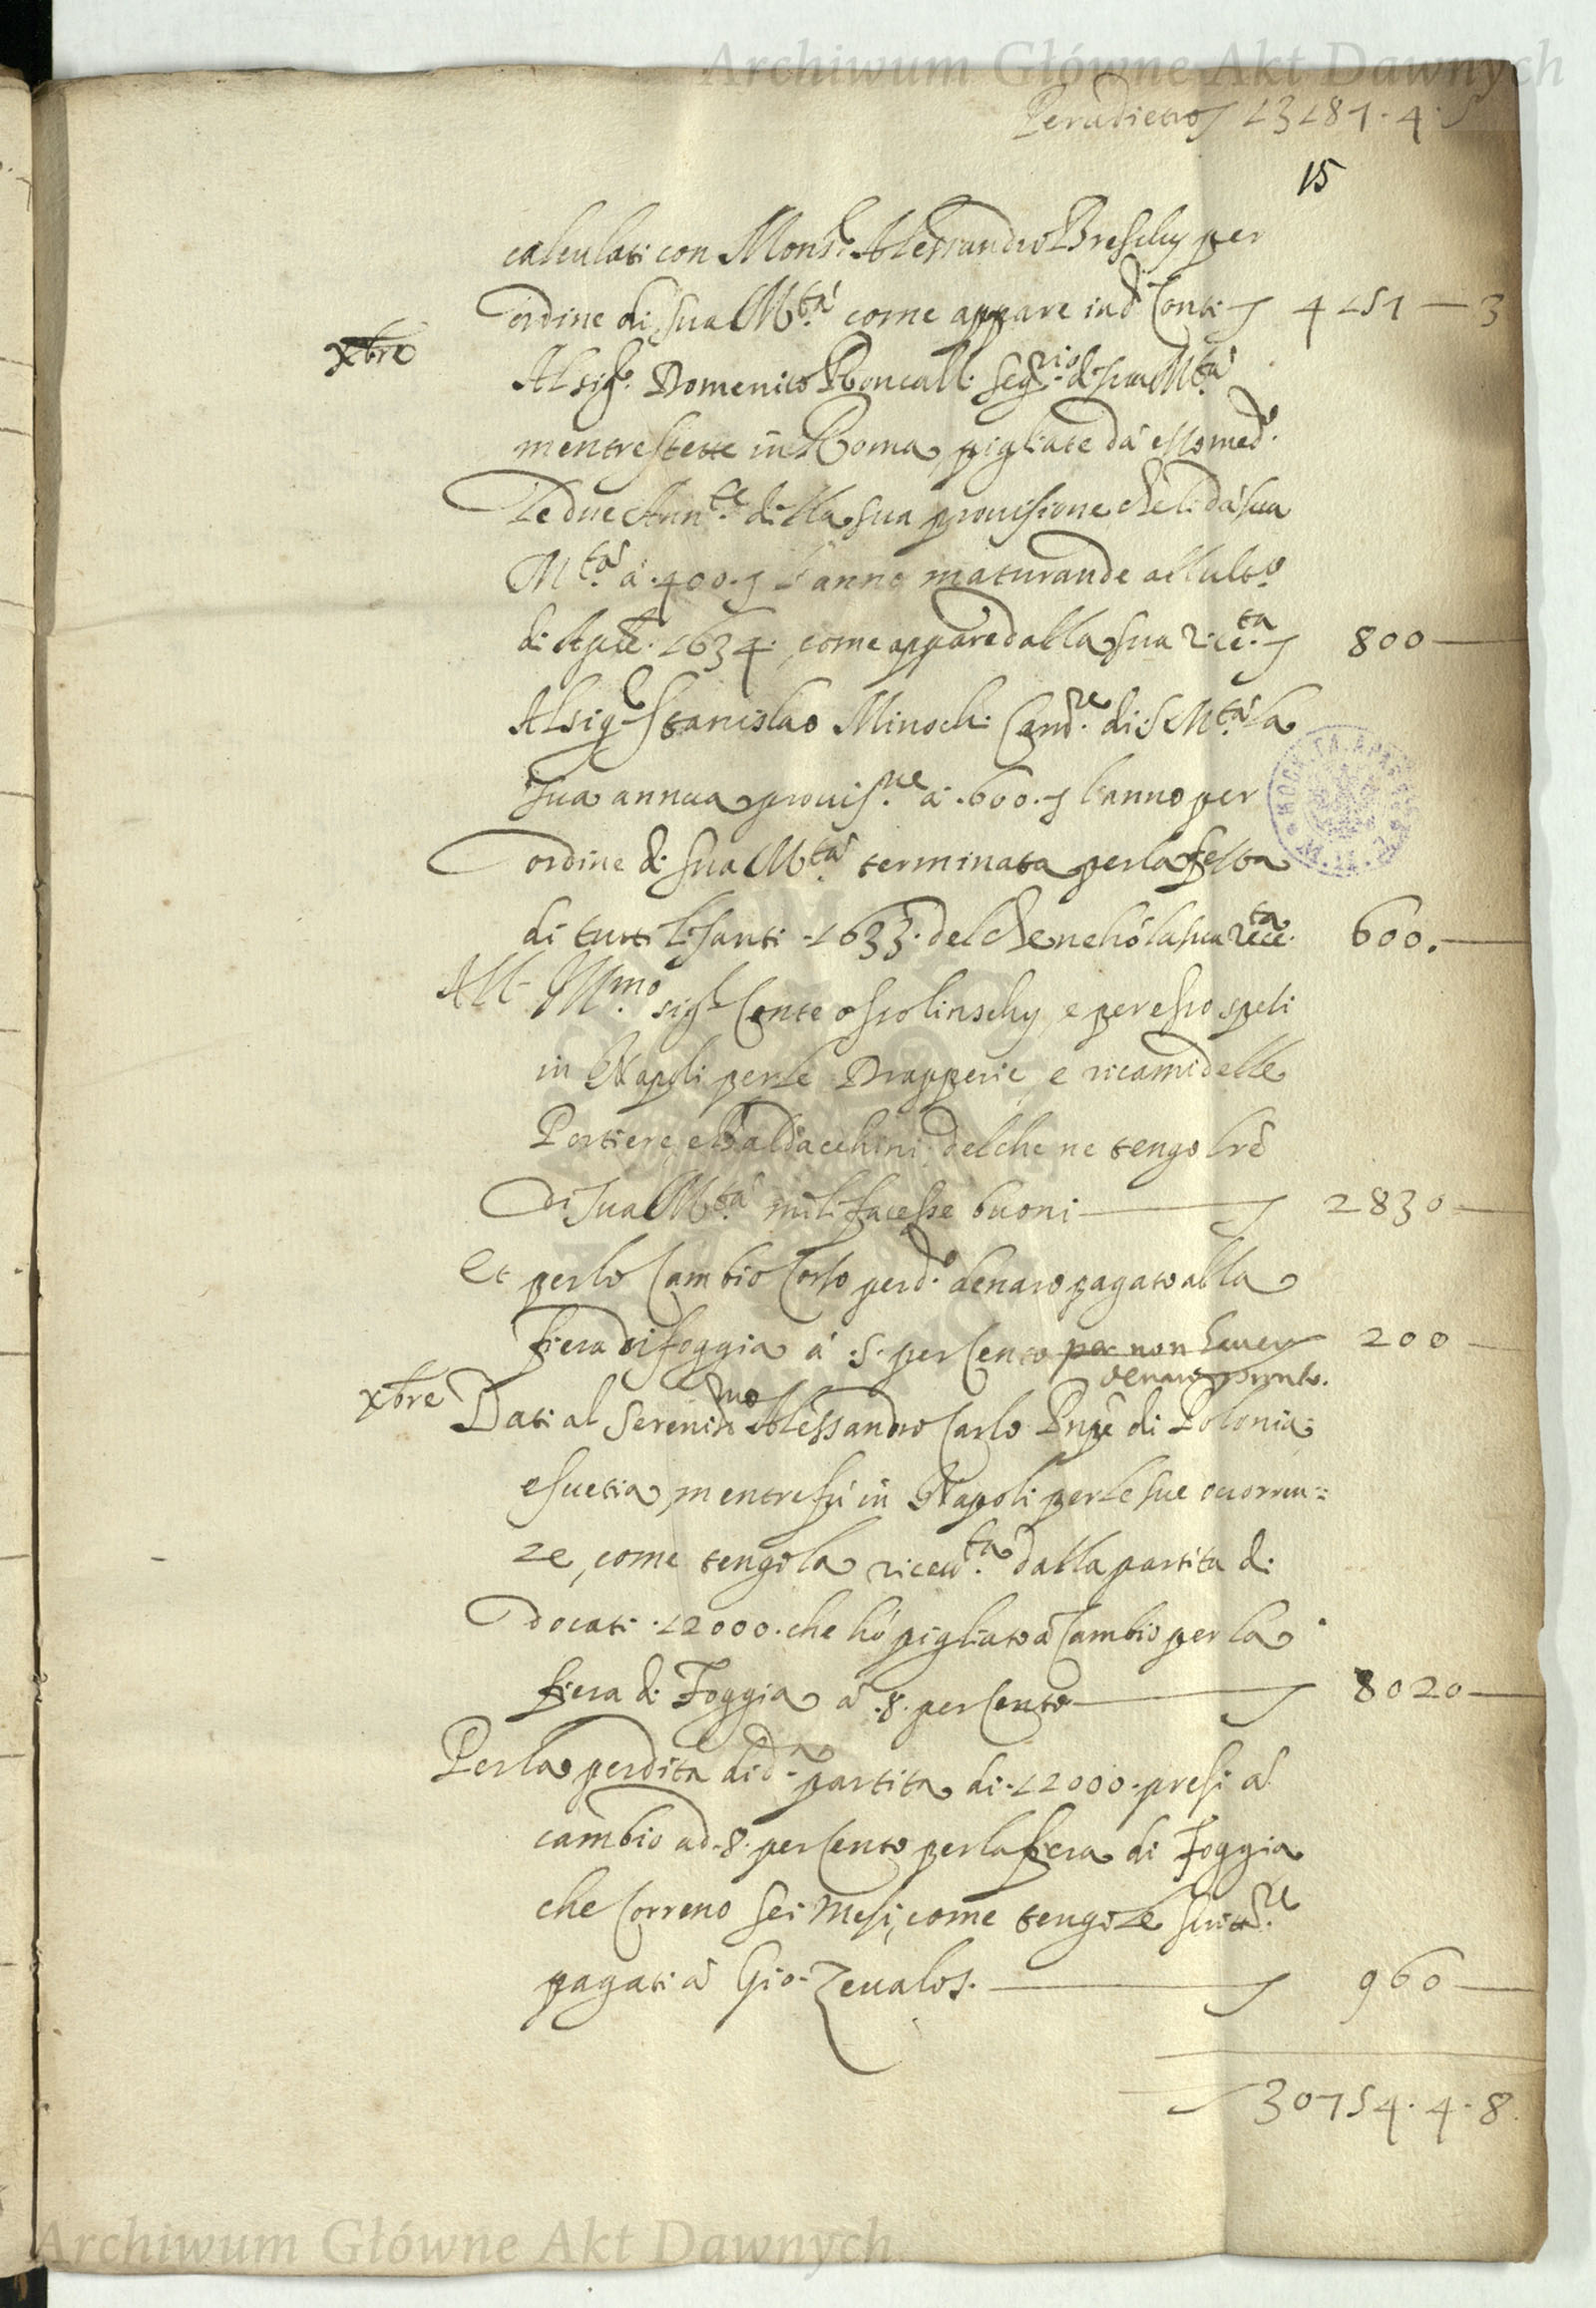 Archiwum Główne Akt Dawnych
Per adietro 13181.4.5
15
calculati con Mons.r Alessandro Breschy per
ordine di sua M.tà come appare in d.i Conti 4151 — 3
xbre
Al sig.r Domenico Roncalli seg.rio di sua M.tà
mentre stette in Roma, pigliate da esso med.o
Le due Ann.te della sua provisione che li dà sua
M.tà à .400. l'anno maturande all'ult.o
di Aple. 1634. come appare dalla sua rice.ta 800
Al sig.r Stanislao Minoch: Cam.re di S M.tà la
sua annua provis.ne à .600. l'anno per
ordine di sua M.tà terminata per la festa
di tutti li santi .1633. del che ne hò la sua rice.ta 600.
All' Ill.mo sig.r Conte ossolinschy, e per esso spesi
in Napoli per le Drapperie, e ricami delle
Portiere, e Baldacchini, del che ne tengo lrẽ
di sua M.tà mili facesse buoni 2830
Et per lo Cambio Corso per d.o denaro pagato alla
fiera di foggia à .5. per Cento per non haver 200
denaro pronto.
xbre Dati al Serenis.mo Alessandro Carlo Prñpe di Polonia,
e suetia, mentre fù in Napoli per le sue ocorren=
ze, come tengo la riceu.ta dalla partita di
docati .12000. che hò pigliato à Cambio per la
fiera di Foggia à .8. per Cento 8020
Per la perdita di d.a partita di .12000. presi à
cambio ad .8. per Cento per la fiera di Foggia
che Correno sei Mesi, come tengo le scritt.re
pagati à Gio. Zeualos. 960
30754.4.8.
Archiwum Główne Akt Dawnych